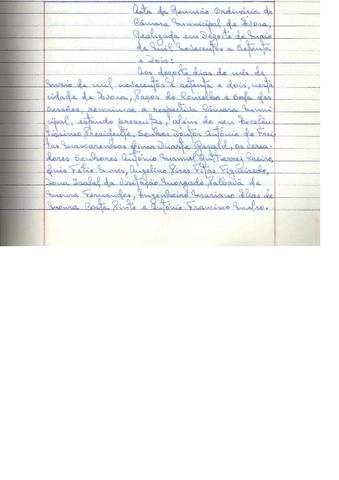 Acta da Reunião Ordinária da
Câmara Municipal de Évora,
Realizada em Dezoito de Maio
de Mil Novecentos e Setenta
e Dois:
Aos dezoito dias do mês de
Maio de mil novecentos e setenta e dois, nesta
cidade de Évora, Paços do Concelho e Sala das
Sessões, reuniu-se a respectiva Câmara Muni-
cipal, estando presentes, além do seu Excelen-
tíssimo Presidente, Senhor Doutor António de Frei-
tas Mascarenhas Duarte Gerald, os Verea-
dores Senhores António Manuel Caeiro,
Luís Félix Nunes, Angelino Pires Fitas Figueiredo,
Dona Isabel da Visitação Morgado de
Moura Fernandes, Engenheiro Mariano Elias de
Moura Costa Pinto e António Francisco